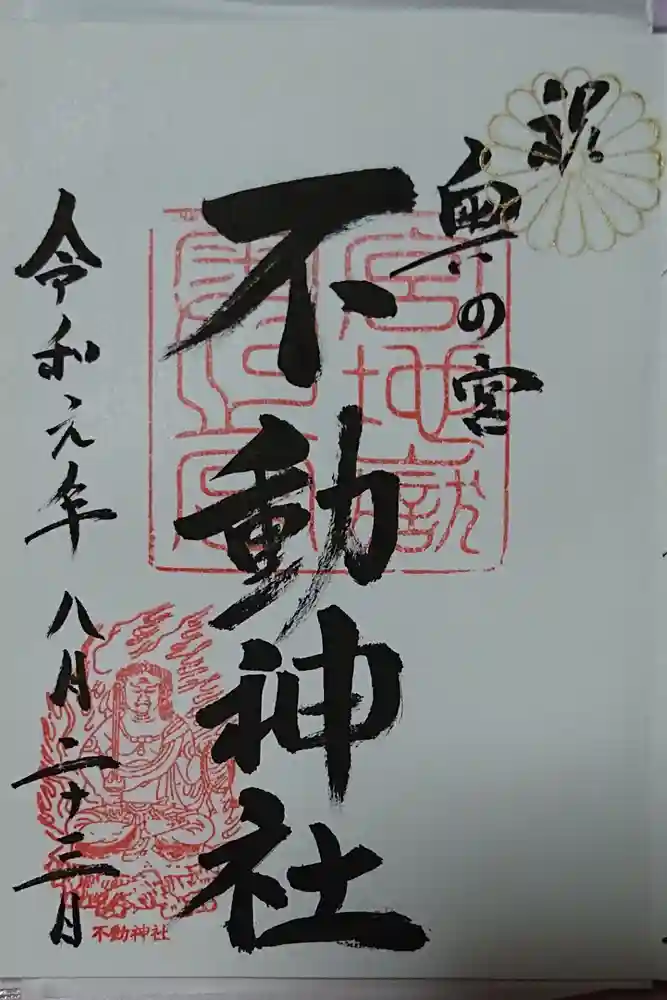 祝
奥の宮
不動神社
令和元年 八月二十三日
不動神社